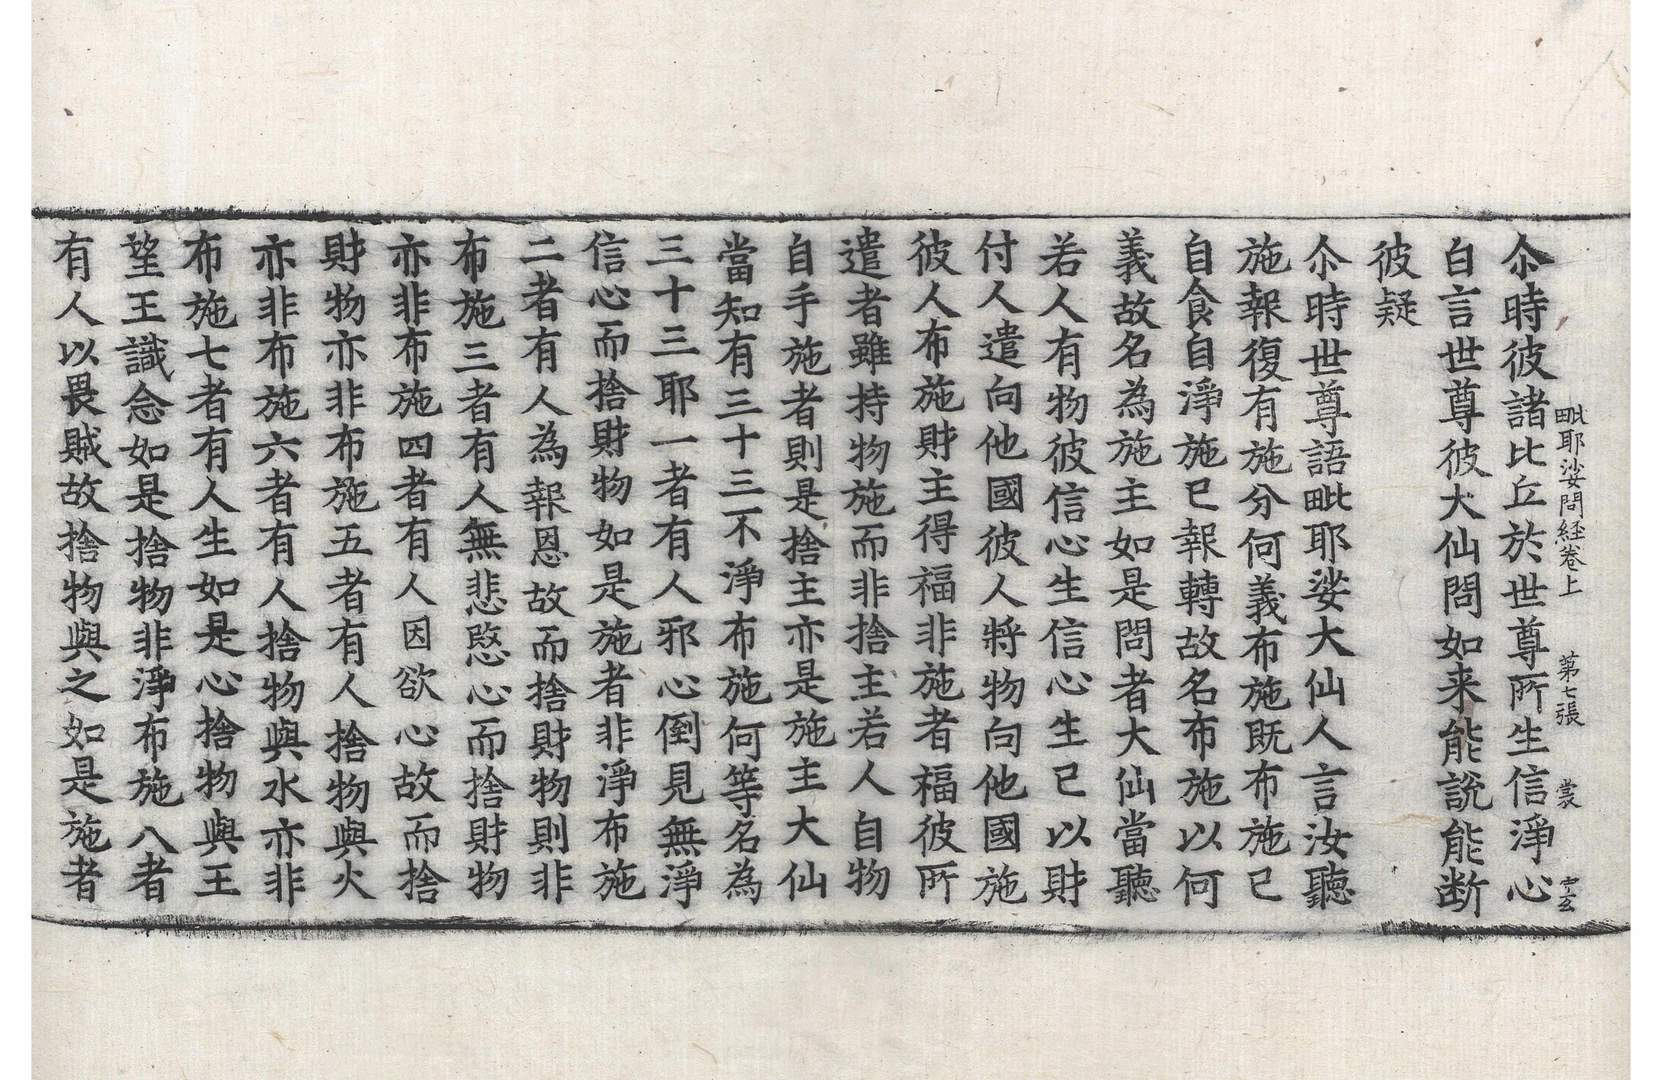 毗耶娑問経卷上 第七張 裳 玄
尒時彼諸比丘於世尊所生信淨心
白言世尊彼大仙問如来能説能断
彼疑
尒時世尊語毗耶娑大仙人言汝聽
施報復有施分何義布施既布施已
自食自淨施已報轉故名布施以何
義故名為施主如是問者大仙當聽
若人有物彼信心生信心生已以財
付人遣向他國彼人將物向他國施
彼人布施財主得福非施者福彼所
遣者雖持物施而非捨主若人自物
自手施者則是捨主亦是施主大仙
當知有三十三不淨布施何等名為
三十三耶一者有人邪心倒見無淨
信心而捨財物如是施者非淨布施
二者有人為報恩故而捨財物則非
布施三者有人無悲愍心而捨財物
亦非布施四者有人因欲心故而捨
財物亦非布施五者有人捨物與火
亦非布施六者有人捨物與水亦非
布施七者有人生如是心捨物與王
望王識念如是捨物非淨布施八者
有人以畏賊故捨物與之如是施者